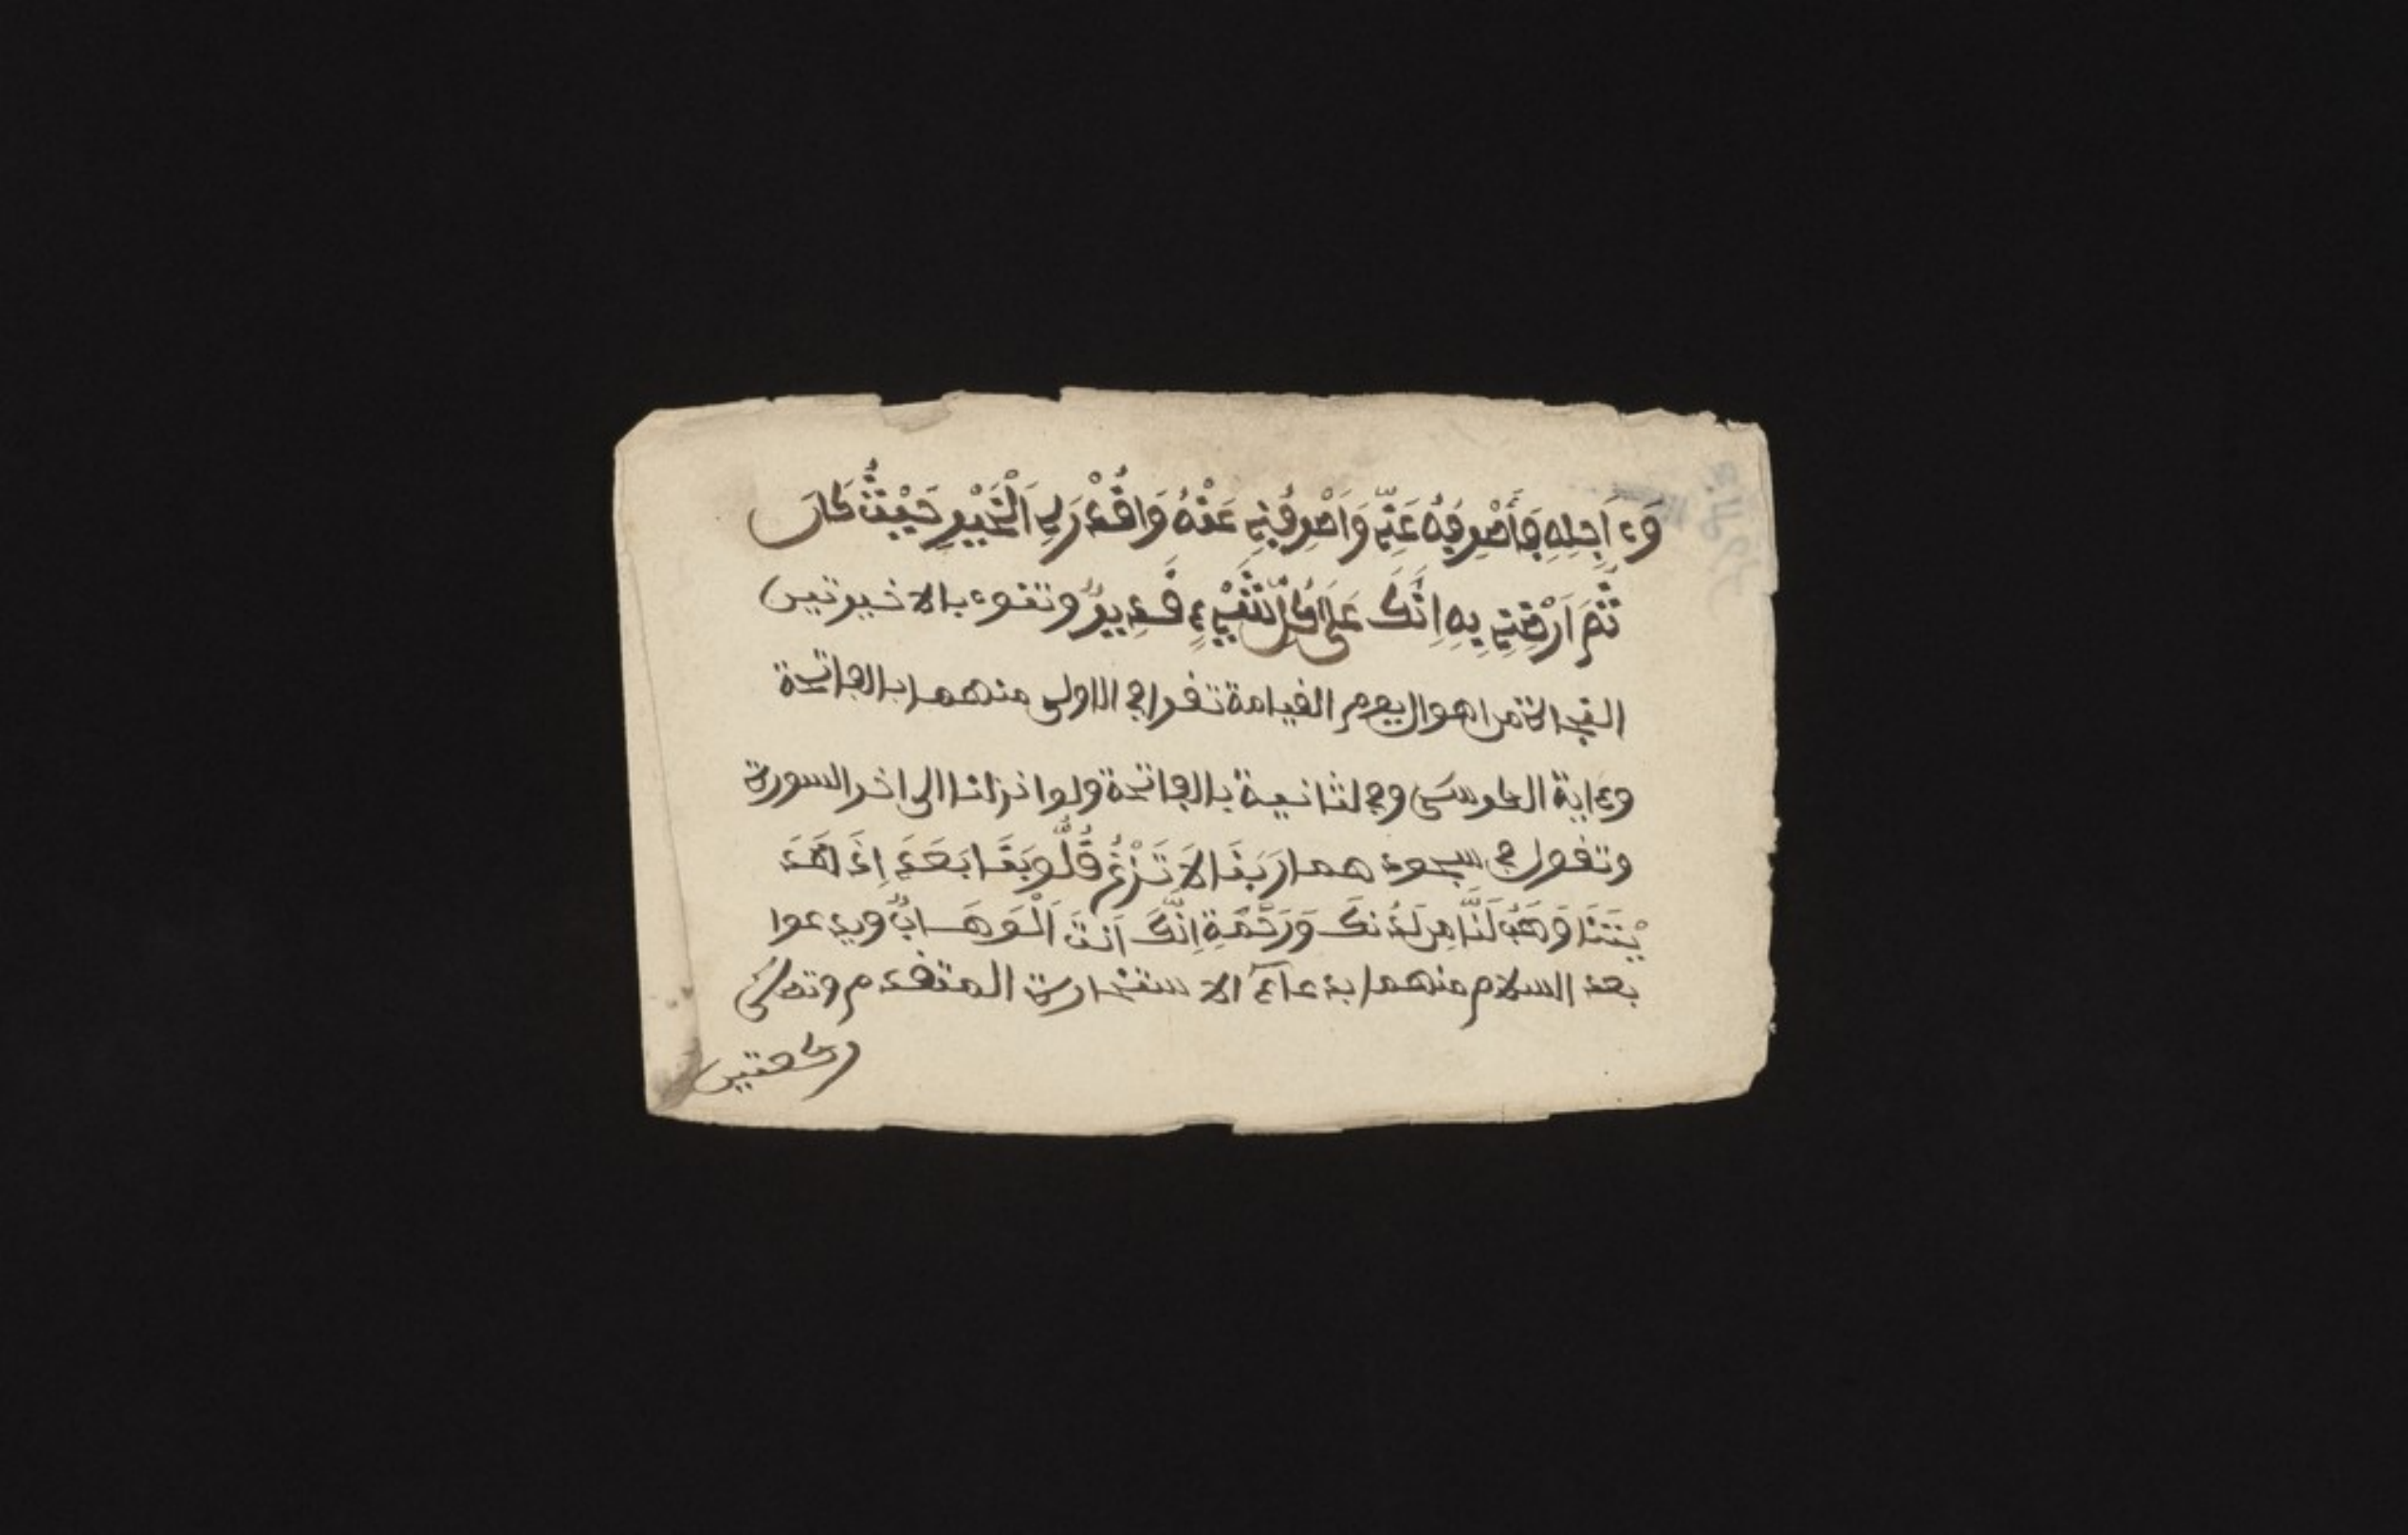 وَءَاجِلِهِ فَأَصْرِفْهُ عَنِّي وَاصْرِفْنِي عَنْهُ وَاقْدُرْ لِي اَلْخَيْرِ حَيْثُ كَانَ
ثُمَّ اَرْضِنِي بِهِ اِنَّكَ عَلَى كُلِّ شَيْءٍ قَدِيرٌ وتنوي بالاخيرتين
النجاة من اهوال يوم القيامة تقرا في الاولى منهما بالفاتحة
وءاية الكرسي وفي لثانية بالفاتحة ولوا نزلنا الى اخر السورة
وتقول في سجودهما رَبَنَا لَا تَزُغْ قُلُوبَنَا بَعَدَ اِذَ هَدَ
يْتَنَا وَهَبْ لَنَّا مِن لَدُنكَ وَرَحْمَةِ اِنَّكَ اَنتَ اَلْوَهَابُ ويدعوا
بعد السلام منهما بدعاء الاستخارة المتقدم وتصلي
ركعتين